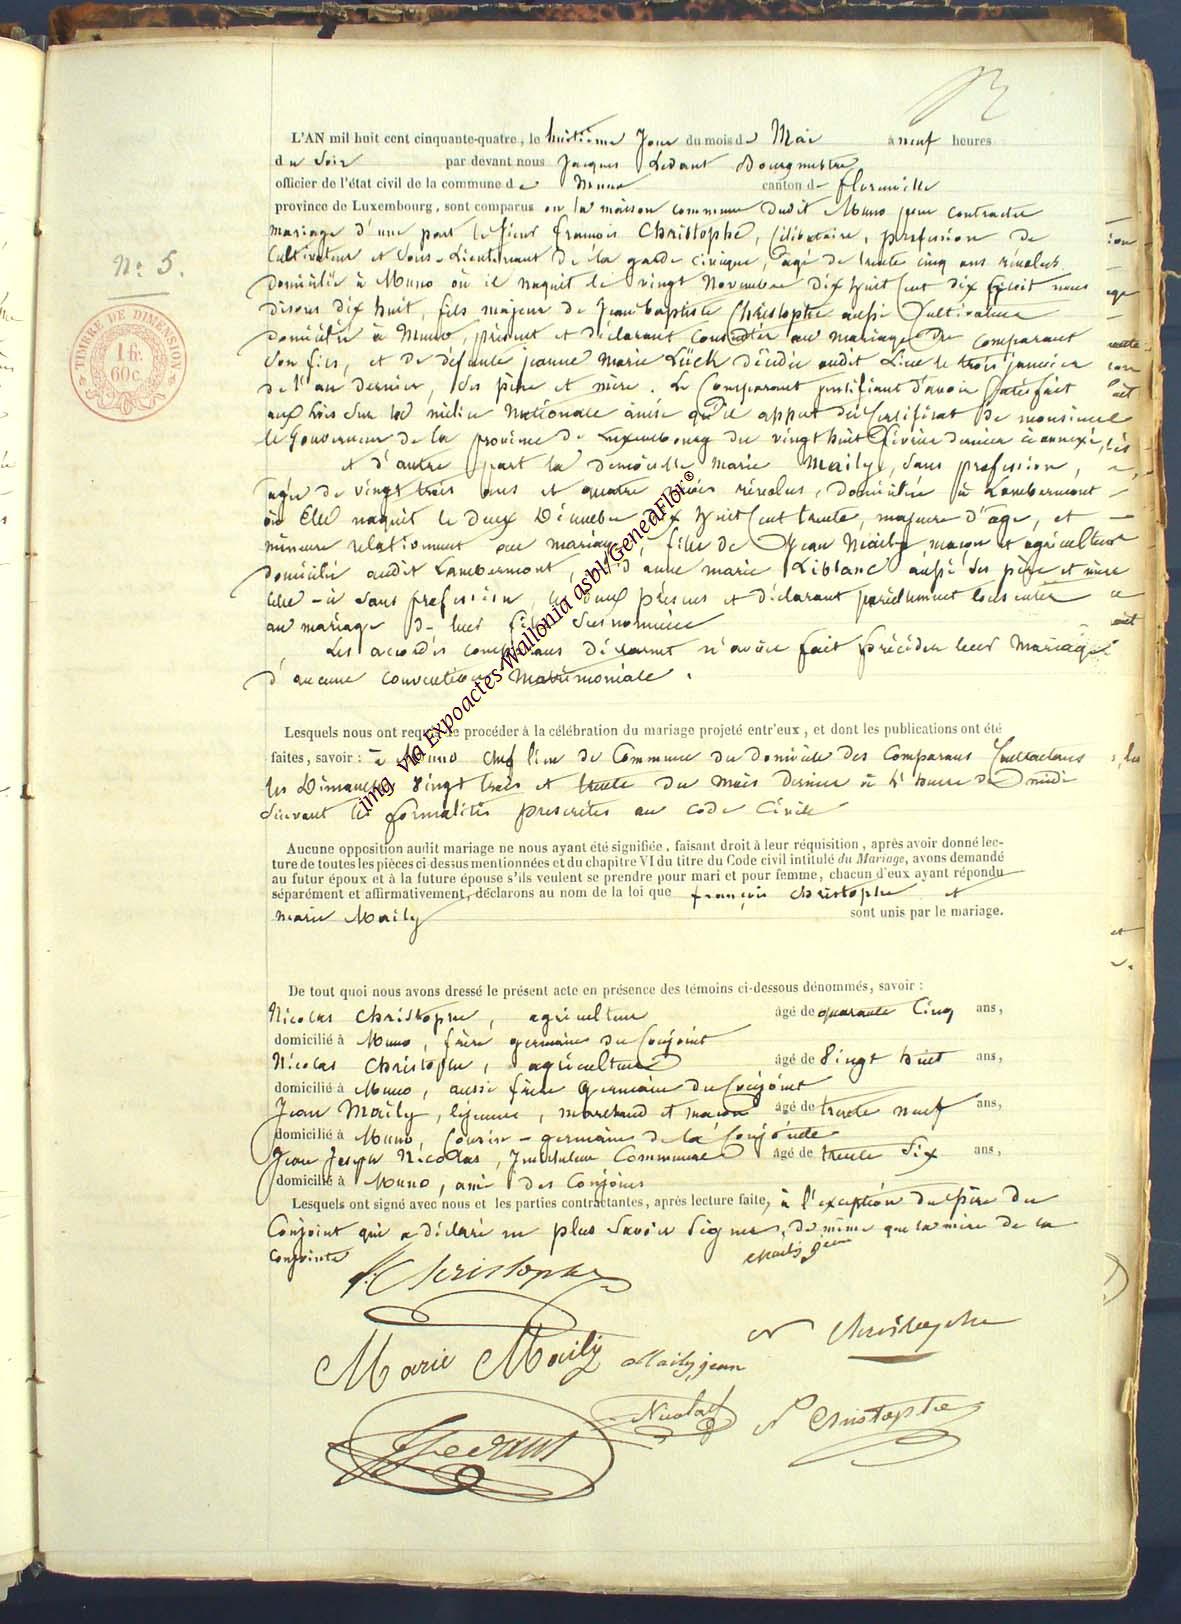 L'AN mil huit cent cinquante-quatre, le huitième Jour du mois de Mai à neuf heures
du Soir par devant nous Jacques Ledant Bourgmestre
officier de l'état civil de la commune de Muno canton de florenville
province de Luxembourg, sont comparus en la maison commune dudit Muno pour contracter
mariage d'une part le sieur francois Christophe, Célibataire, profession de
Cultivateur et Sous-Lieutenant de la garde civique, agé de trente cinq ans révolus
domicilié à Muno où il naquit le vingt Novembre dix huit Cent dix huit nous
disons dix huit, fils majeur de Jean baptiste Christophe aussi Cultivateur
domicilié à Muno, présent et déclarant Consentir au mariage du Comparant
Son fils, et de défunte jeanne Marie Lück décédée audit Lieu le trois janvier
de l'an dernier, Ses père et mère. Le Comparant justifiant d'avoir Satisfait
aux Lois Sur la milice Nationale ainsi qu'il appert du Certificat de monsieur
le Gouverneur de la province de Luxembourg du vingt huit février dernier ci annexé,
et d'autre part la demoiselle Marie Maily, Sans profession,
agée de vingt trois ans et quatre mois révolus, domiciliée à Lambermont
où Elle naquit le deux Décembre dix huit Cent trente, majeure d'age, et
mineure relativement au mariage, fille de Jean Maily, maçon et agriculteur
domicilié audit Lambermont, et d'anne marie Liblanc aussi Ses père et mère
Celle-ci Sans profession, les deux présens et déclarant pareillement Consentir
au mariage de leur fille Susnommée
Les accordés comparans déclarent n'avoir fait précéder leur Mariage
d'aucune convention Matrimoniale.
Lesquels nous ont requis de procéder à la célébration du mariage projeté entr'eux, et dont les publications ont été
faites, savoir: à Muno chef lieu de Commune du domicile des Comparans Contractans
les Dimanches vingt trois et trente du mois dernier à l'heure de midi
Suivant les formalités prescrites au Code Civile
Aucune opposition audit mariage ne nous ayant été signifiée, faisant droit à leur réquisition, après avoir donné lec-
ture de toutes les pièces ci-dessus mentionnées et du chapitre VI du titre du Code civil intitulé du Mariage, avons demandé
au futur époux et à la future épouse s'ils veulent se prendre pour mari et pour femme, chacun d'eux ayant répondu
séparément et affirmativement, déclarons au nom de la loi que françois christophe et
marie Maily sont unis par le mariage.
De tout quoi nous avons dressé le présent acte en présence des témoins ci-dessous dénommés, savoir:
Nicolas Christophe, agriculteur âgé de quarante Cinq ans,
domicilié à Muno, frère germain du Conjoint
Nicolas Christophe, agriculteur âgé de Vingt huit ans,
domicilié à Muno, aussi frère Germain du Conjoint
Jean Maily, lejeune, marchand et maçon âgé de trente neuf ans,
domicilié à Muno, Cousin-germain de la Conjointe
Jean Joseph Nicolas, Instituteur Communal âgé de trente Six ans,
domicilié à Muno, ami des Conjoins
Lesquels ont signé avec nous et les parties contractantes, après lecture faite, à l'exception du père du
Conjoint qui a déclaré ne plus Savoir Signer, de même que la mère de la
Conjointe
Maily jean
f. Christophe
N Christophe
Marie Maily
Maily, jean
Nicolas
N Christophe
JLedant
N° 5.
TIMBRE DE DIMENSION
1 fr.
60 c.
img via Expoactes-Wallonia asbl/GeneaFlor©